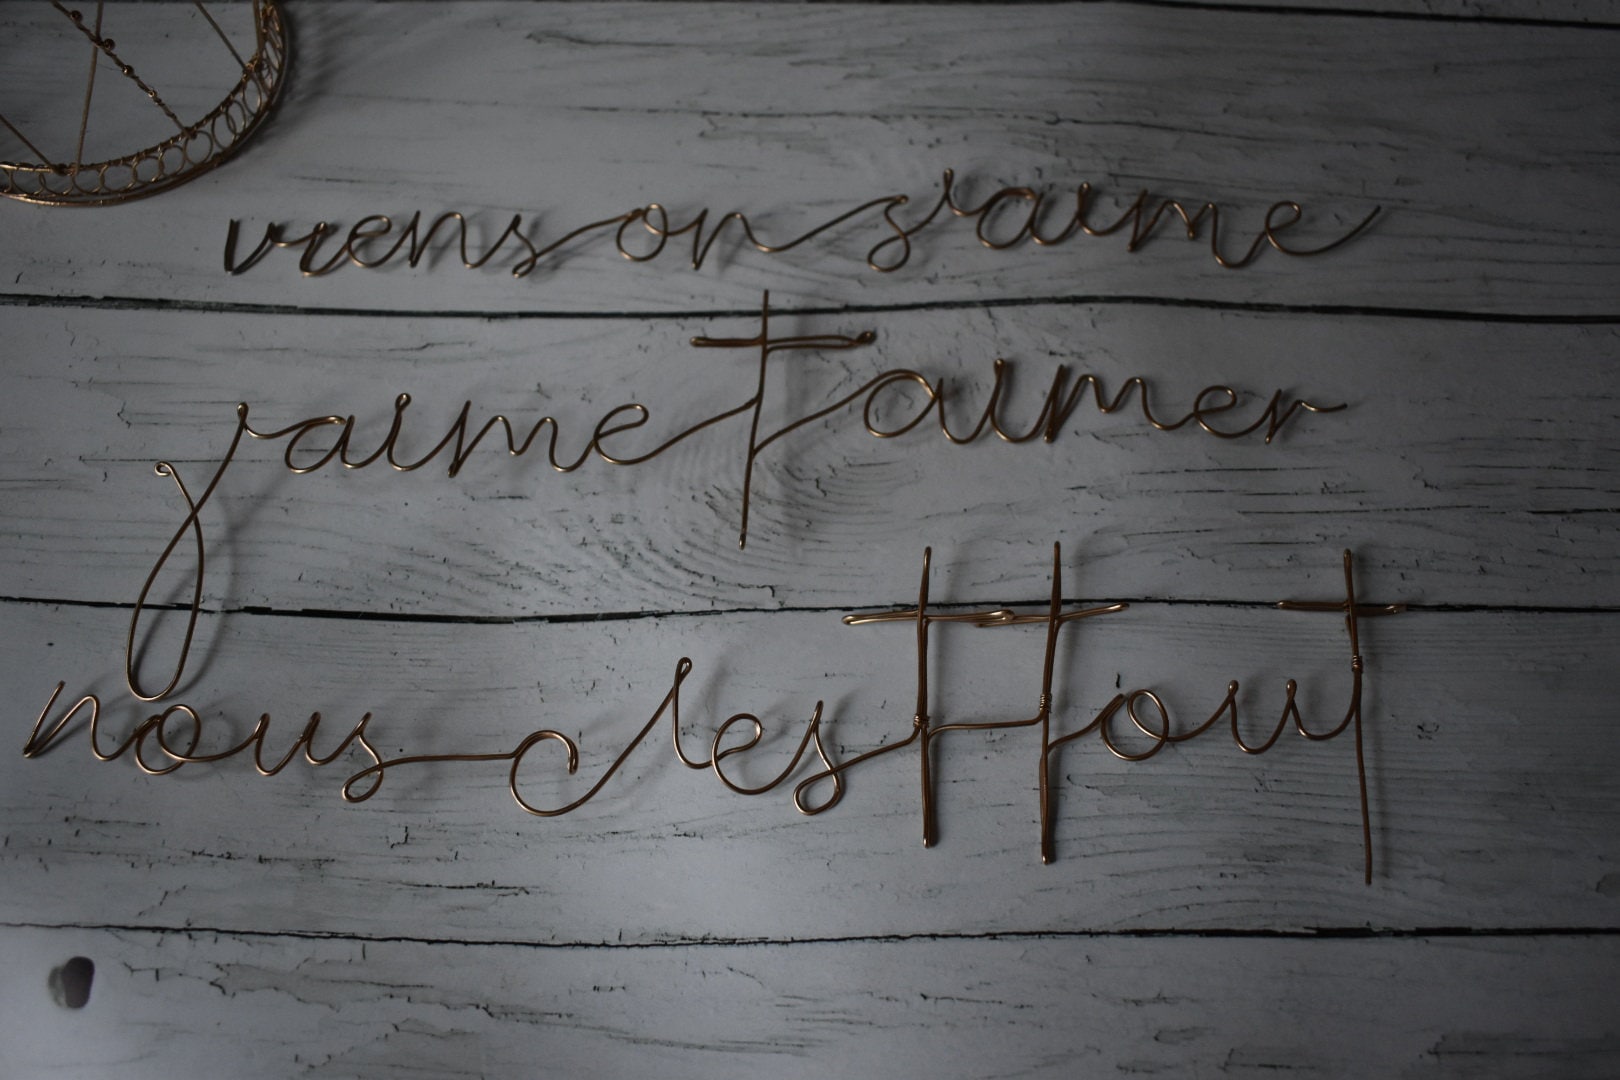 viens on s'aime
j'aime t'aimer
nous c'est tout